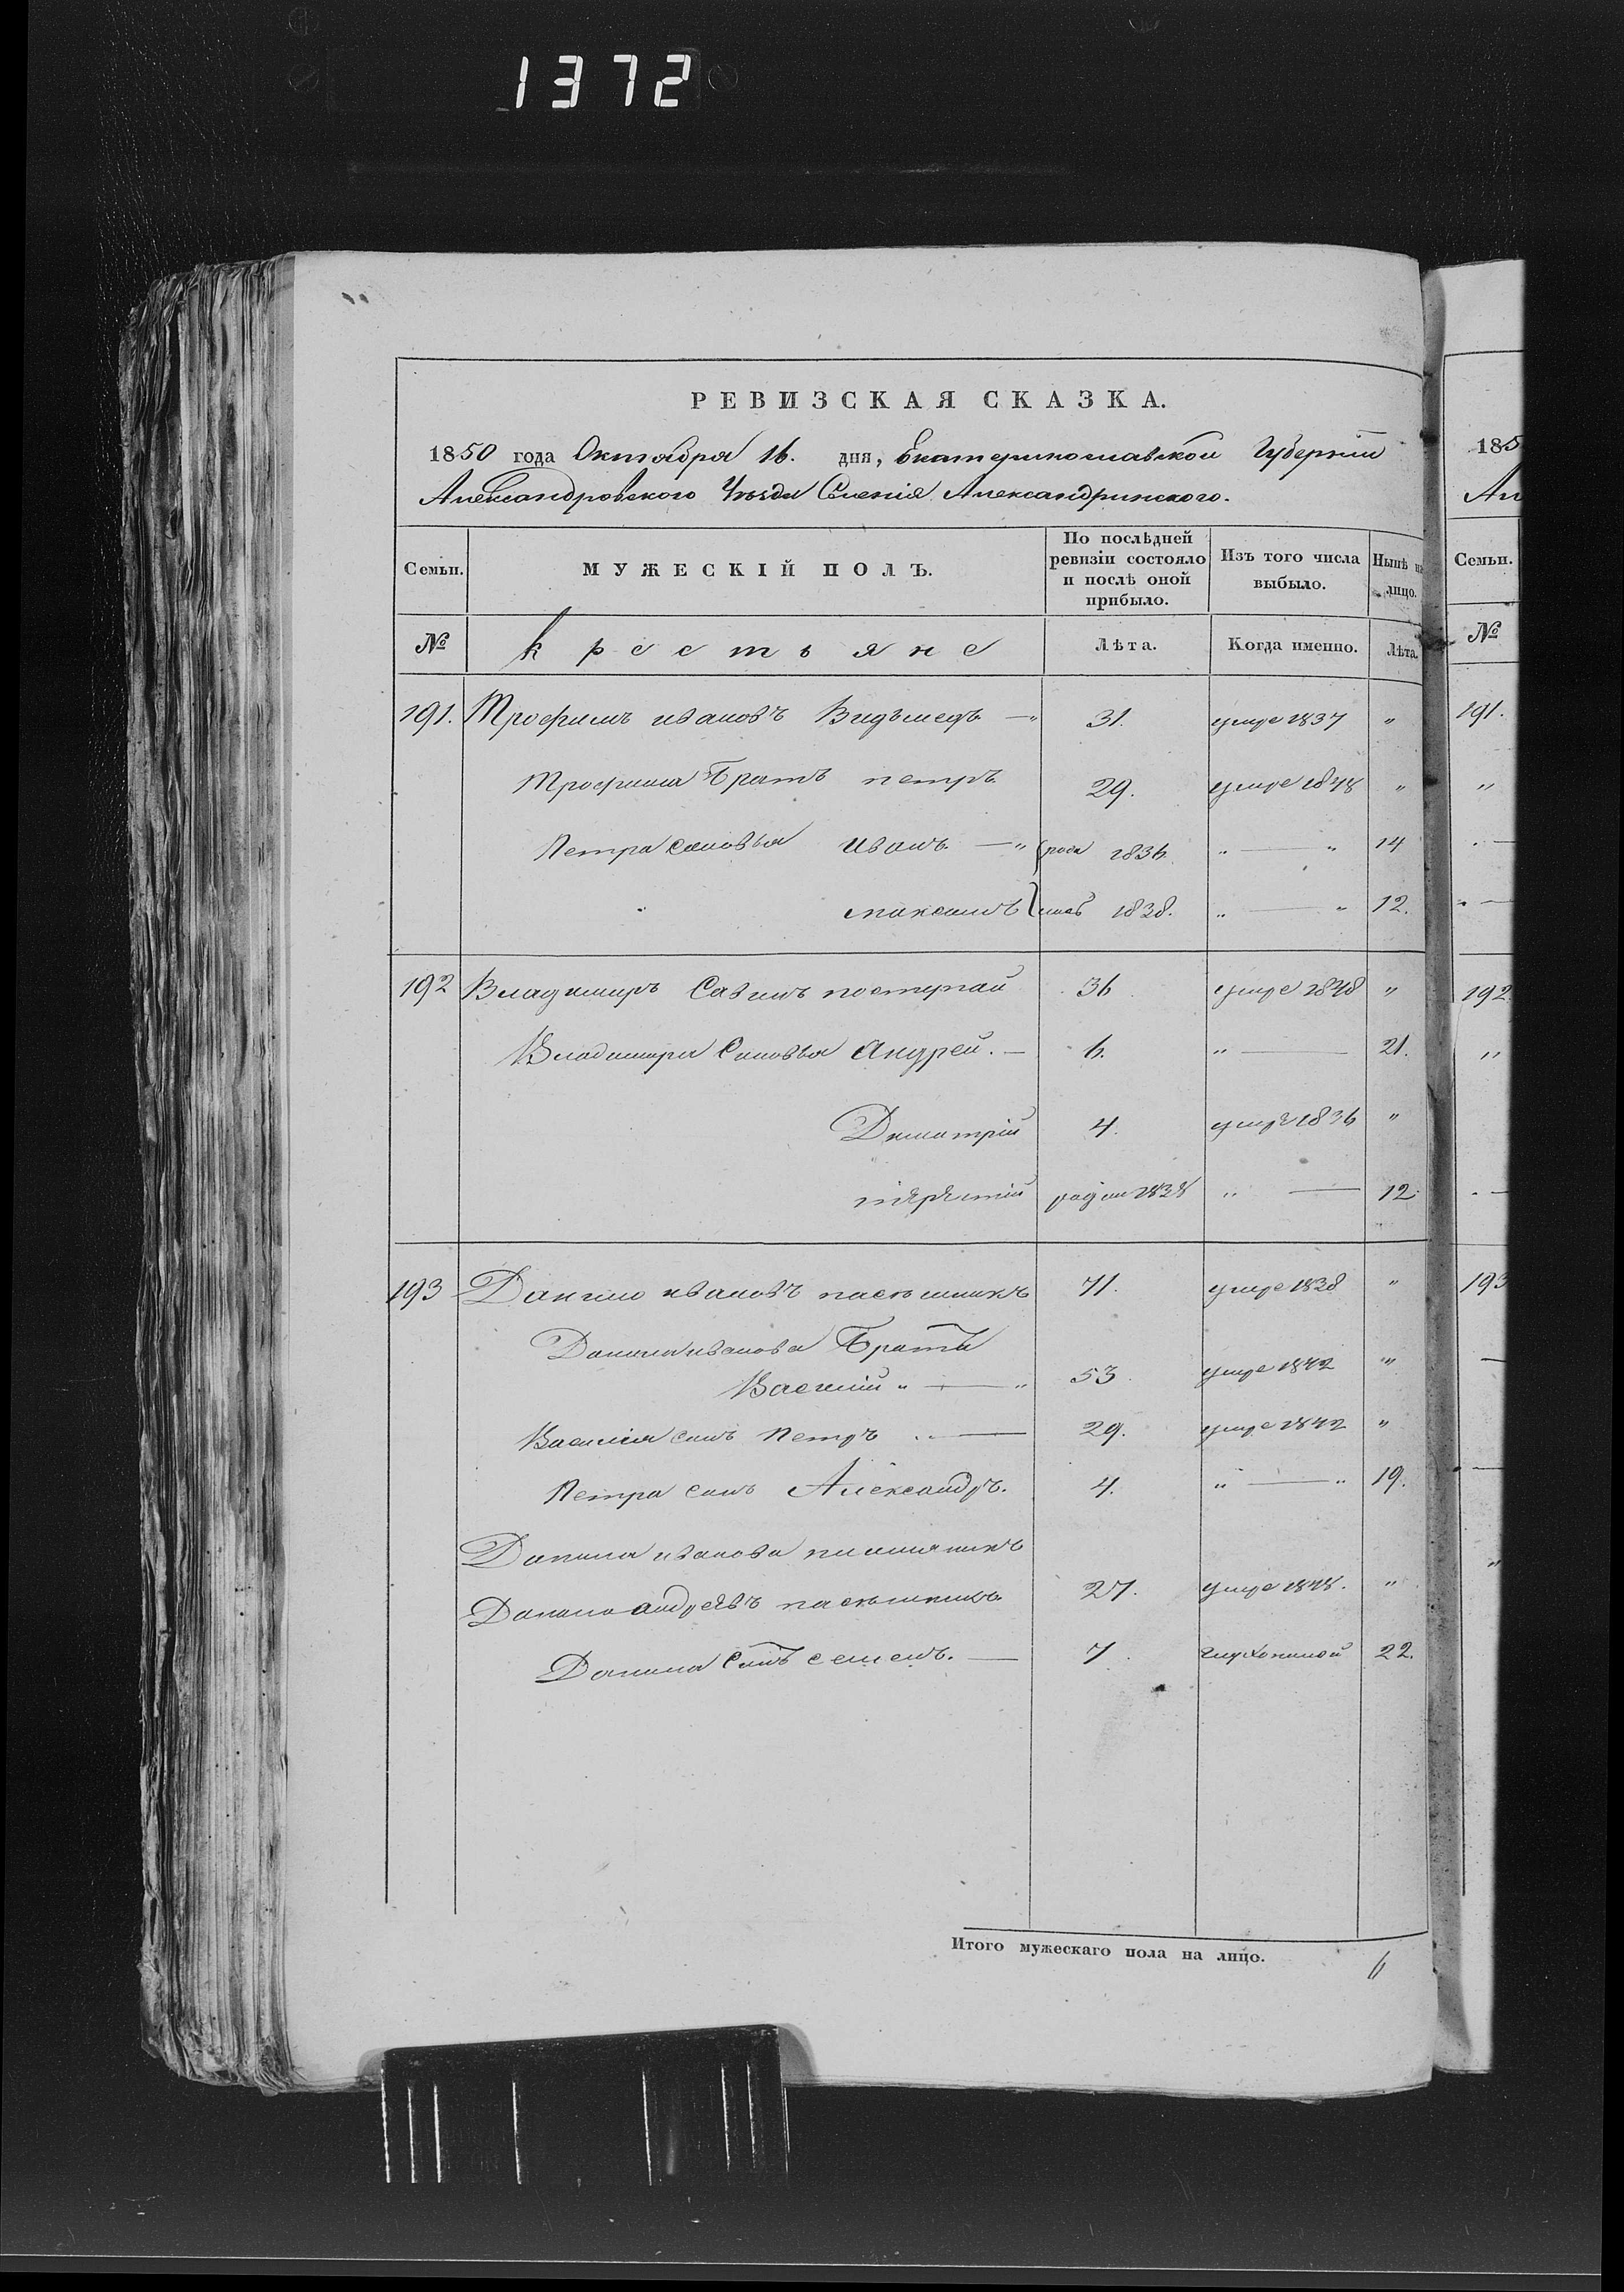 1372
РЕВИЗСКАЯ СКАЗКА.
1850 года Октября 16. дня, Екатеринославской Губерніи
Александровского Уѣзда Селенія Александринского.
Семьи. МУЖЕСКІЙ ПОЛЪ. По послѣдней ревизіи состояло и послѣ оной прибыло. Изъ того числа выбыло. Нынѣ на лицо.
№ крестьяне Лѣта. Когда именно. Лѣта.
191. Трофимъ ивановъ — " 31. умре 1837 "
Трофима Братъ петръ 29. умре 1848 "
Петра сыновья иванъ — " 1836 " — " 14
максимъ 1838. " — " 12.
192 Владимиръ Савинъ 36 умре 1848 "
Владимира Сыновья Андрей. — 6. " — 21.
Димитрій 4. умре 1836 "
родил 1838 " — 12.
193 Данило ивановъ пасѣшникъ 71. умре 1838 "
Данила иванова Братъ
Василій " — " 53. умре 1842 "
Василія сынъ Петръ " — 29. умре 1842 "
Петра сынъ Александръ. 4. " — " 19.
Данила иванова племяникъ
Данило андреевъ пасѣшникъ 27. умре 1848. "
Данила сынъ семенъ. — 7. глухонимой 22.
Итого мужескаго пола на лицо. 6
185
Ал
Семьи.
№
191.
"
192
"
193
"